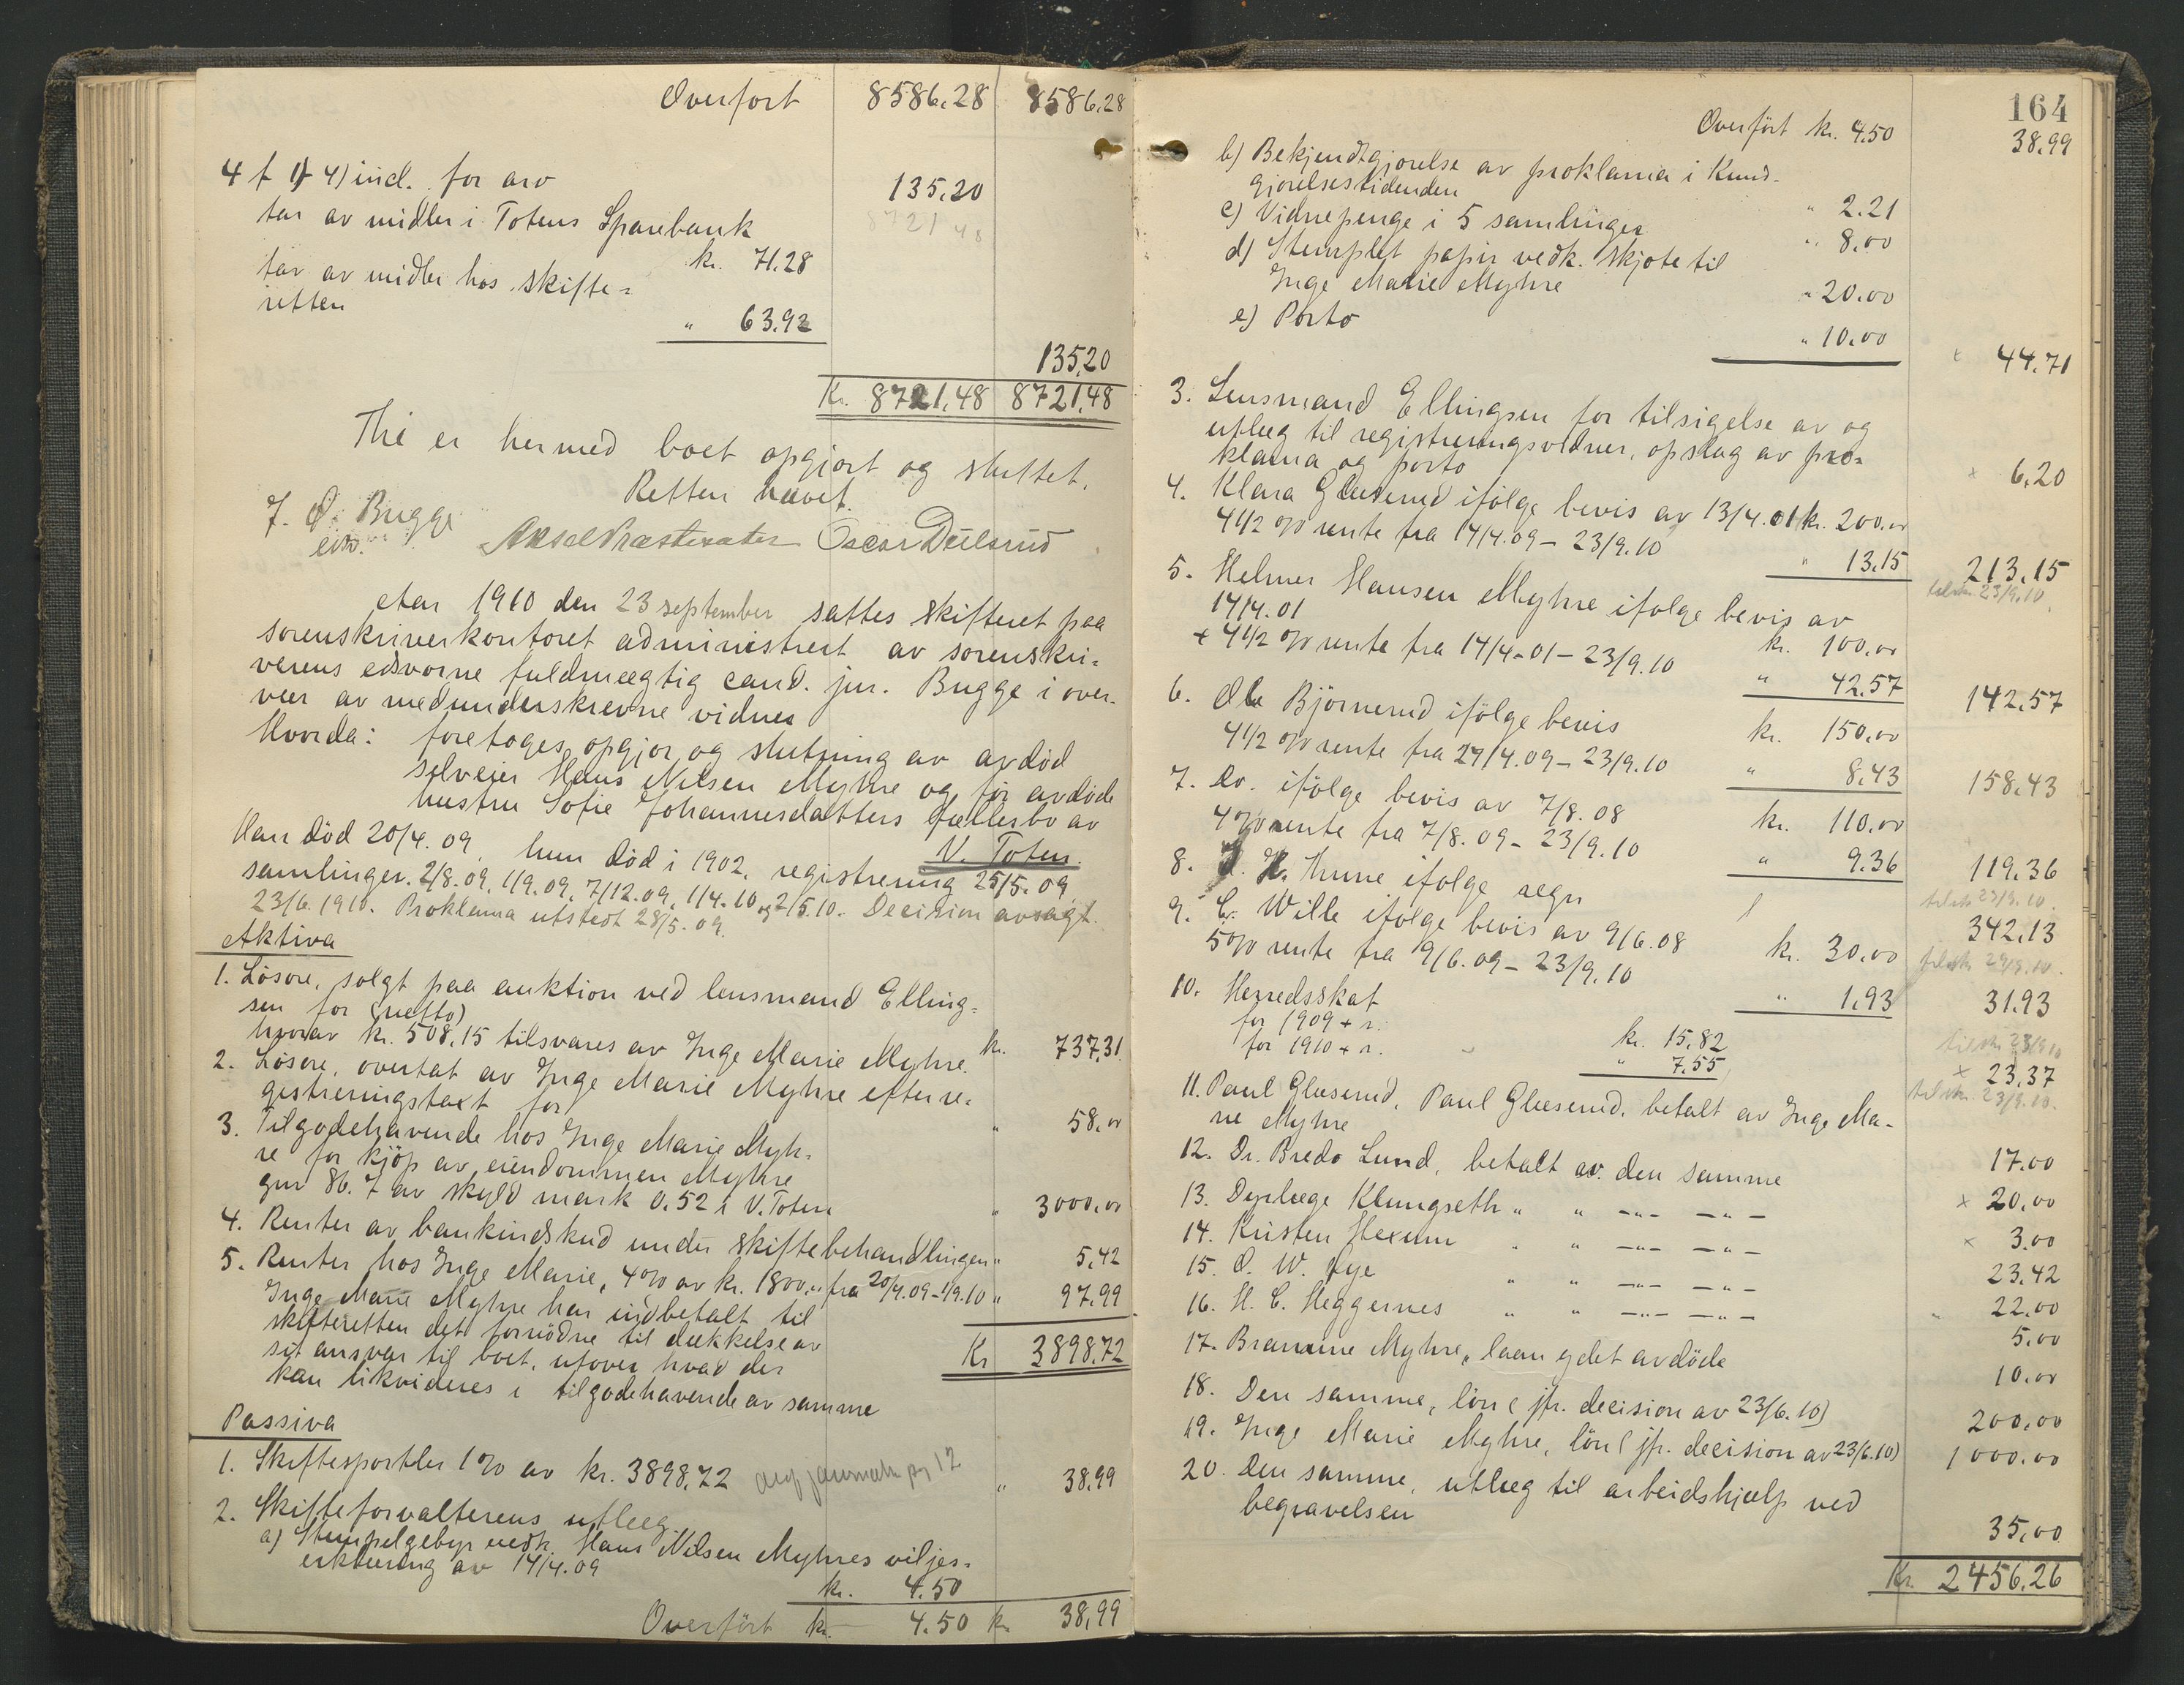 Overfört 8586.28 8586.28
4 f 1) 4) incl. for arv 135.20
tar av midler i Totens Sparebank
kr. 71.28
tar av midler hos skifte=
retten " 63.92
135,20
Kr. 8721.48 8721.48
Thi er hermed boet opgjort og sluttet.
Retten hævet.
F. O. Bugge
Aksel Præstesæter Oscar Deilsrud
Aar 1910 den 23 september sattes skifteret paa
sorenskriverkontoret administrert av sorenskri=
verens edsvorne fuldmægtig cand. jur. Bugge i over-
vær av medunderskrevne vidner
Hvorda: foretoges opgjør og slutning av avdød
selveier Hans Nilsen Myhre og før avdøde
hustru Sofie Johannesdatters fællesbo av
V. Toten.
Han död 20/4.09, hun död i 1902, registrering 25/5.09,
samlinger. 2/8.09, 1/9.09, 7/12.09, 1/4.10 og 2/5.10. Decision avsagt
23/6.1910. Proklama utstedt 28/5.09.
Aktiva
1. Lösöre, solgt paa auktion ved lensmand Elling=
sen for (netto) kr. 737,31
hvorav kr. 508,15 tilsvares av Inge Marie Myhre.
2. Lösöre, overtat av Inge Marie Myhre efter re=
gistreringstaxt for " 58.00
3. Tilgodehavende hos Inge Marie Myh=
re for kjöp av eiendommen Myhre
gnr 86.7 av skyld mark 0.52 i V. Toten " 3000.00
4. Renter av bankindskud under skiftebehandlingen " 5,42
5. Renter hos Inge Marie, 4% av kr. 1800.00 fra 20/4.09-1/9.10 " 97.99
Kr 3898.72
Inge Marie Myhre har indbetalt til
skifteretten det fornödne til dækkelse av
sit ansvar til boet, utover hvad der
kan likvideres i tilgodehavende av samme
Passiva
1. Skiftesportler 1% av kr. 3898,72 " 38.99
2. Skifteforvalterens utlæg.
a) Stempelgebyr vedk. Hans Nilsen Myhres viljes=
erklæring av 14/4.09 kr. 4.50
Overfört kr. 4.50 kr. 38,99
164
Overfört kr. 4.50 38.99
b) Bekjendtgjörelse av proklama i Kund-
gjörelsestidenden " 2.21
c) Vidnepenge i 5 samlinger " 8.00
d) Stemplet papir vedk. skjöte til
Inge Marie Myhre " 20.00
e) Porto " 10.00
x 44.71
3. Lensmand Ellingsen for tilsigelse av og
utlæg til registreringsvidner, opslag av pro=
klama og porto x 6,20
4. Klara Glæserud ifölge bevis av 13/4.01 kr. 200.00
4 1/2 % rente fra 14/4.09 - 23/9.10 " 13.15 213.15
tilskr. 23/9.10.
5. Helmer Hansen Myhre ifölge bevis av
14/4.01 kr. 100.00
+ 4 1/2 % rente fra 14/4-01 - 23/9.10 " 42.57 142.57
6. Ole Björnerud ifölge bevis kr. 150.00
4 1/2 % rente fra 24/4.09 - 23/9.10 " 8.43 158.43
7. Do. ifölge bevis av 7/8.08 kr. 110.00
4 % rente fra 7/8.09 - 23/9.10 " 9.36 119.36
tilskr 23/9.10.
8. Thune ifölge regn 342.13
9. C. Wille ifölge bevis av 9/6.08 kr. 30.00
5% rente fra 9/6.09 - 23/9.10 " 1.93 31.93
10. Herredsskat
for 1909 + r. kr. 15,82
for 1910 + r. " 7.55
tilskr 23/9.10
x 23.37
tilskr. 23/9.10.
11. Paul Glæserud, Paul Glæserud, betalt av Inge Ma-
rie Myhre 17.00
12. Dr. Bredo Lund, betalt av den samme x 20.00
13. Dyrlæge Klungseth " " -"- -"- x 3.00
14. Kristen Hexum " " -"- -"- 23.42
15. O. W. Nye " " -"- -"- 22.00
16. H. C. Heggernes " " -"- -"- 5.00
17. Myhre, laan ydet avdöde 10.00
18. Den samme, lön (jfr. decision av 23/6.10) 200.00
19. Inge Marie Myhre, lön (jfr. decision av 23/6.10) 1000.00
20. Den samme, utlæg til arbeidshjælp ved
begravelsen 35.00
Kr. 2456.26